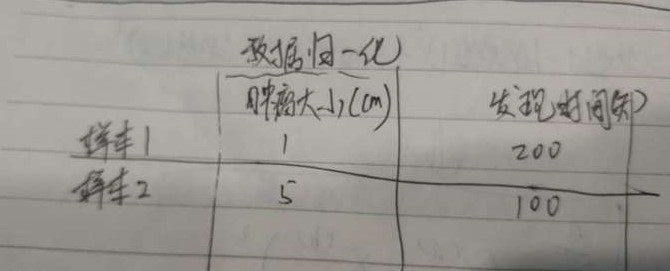 数据归一化
肿瘤大小(cm) 发现时间(天)
样本1 1 200
样本2 5 100